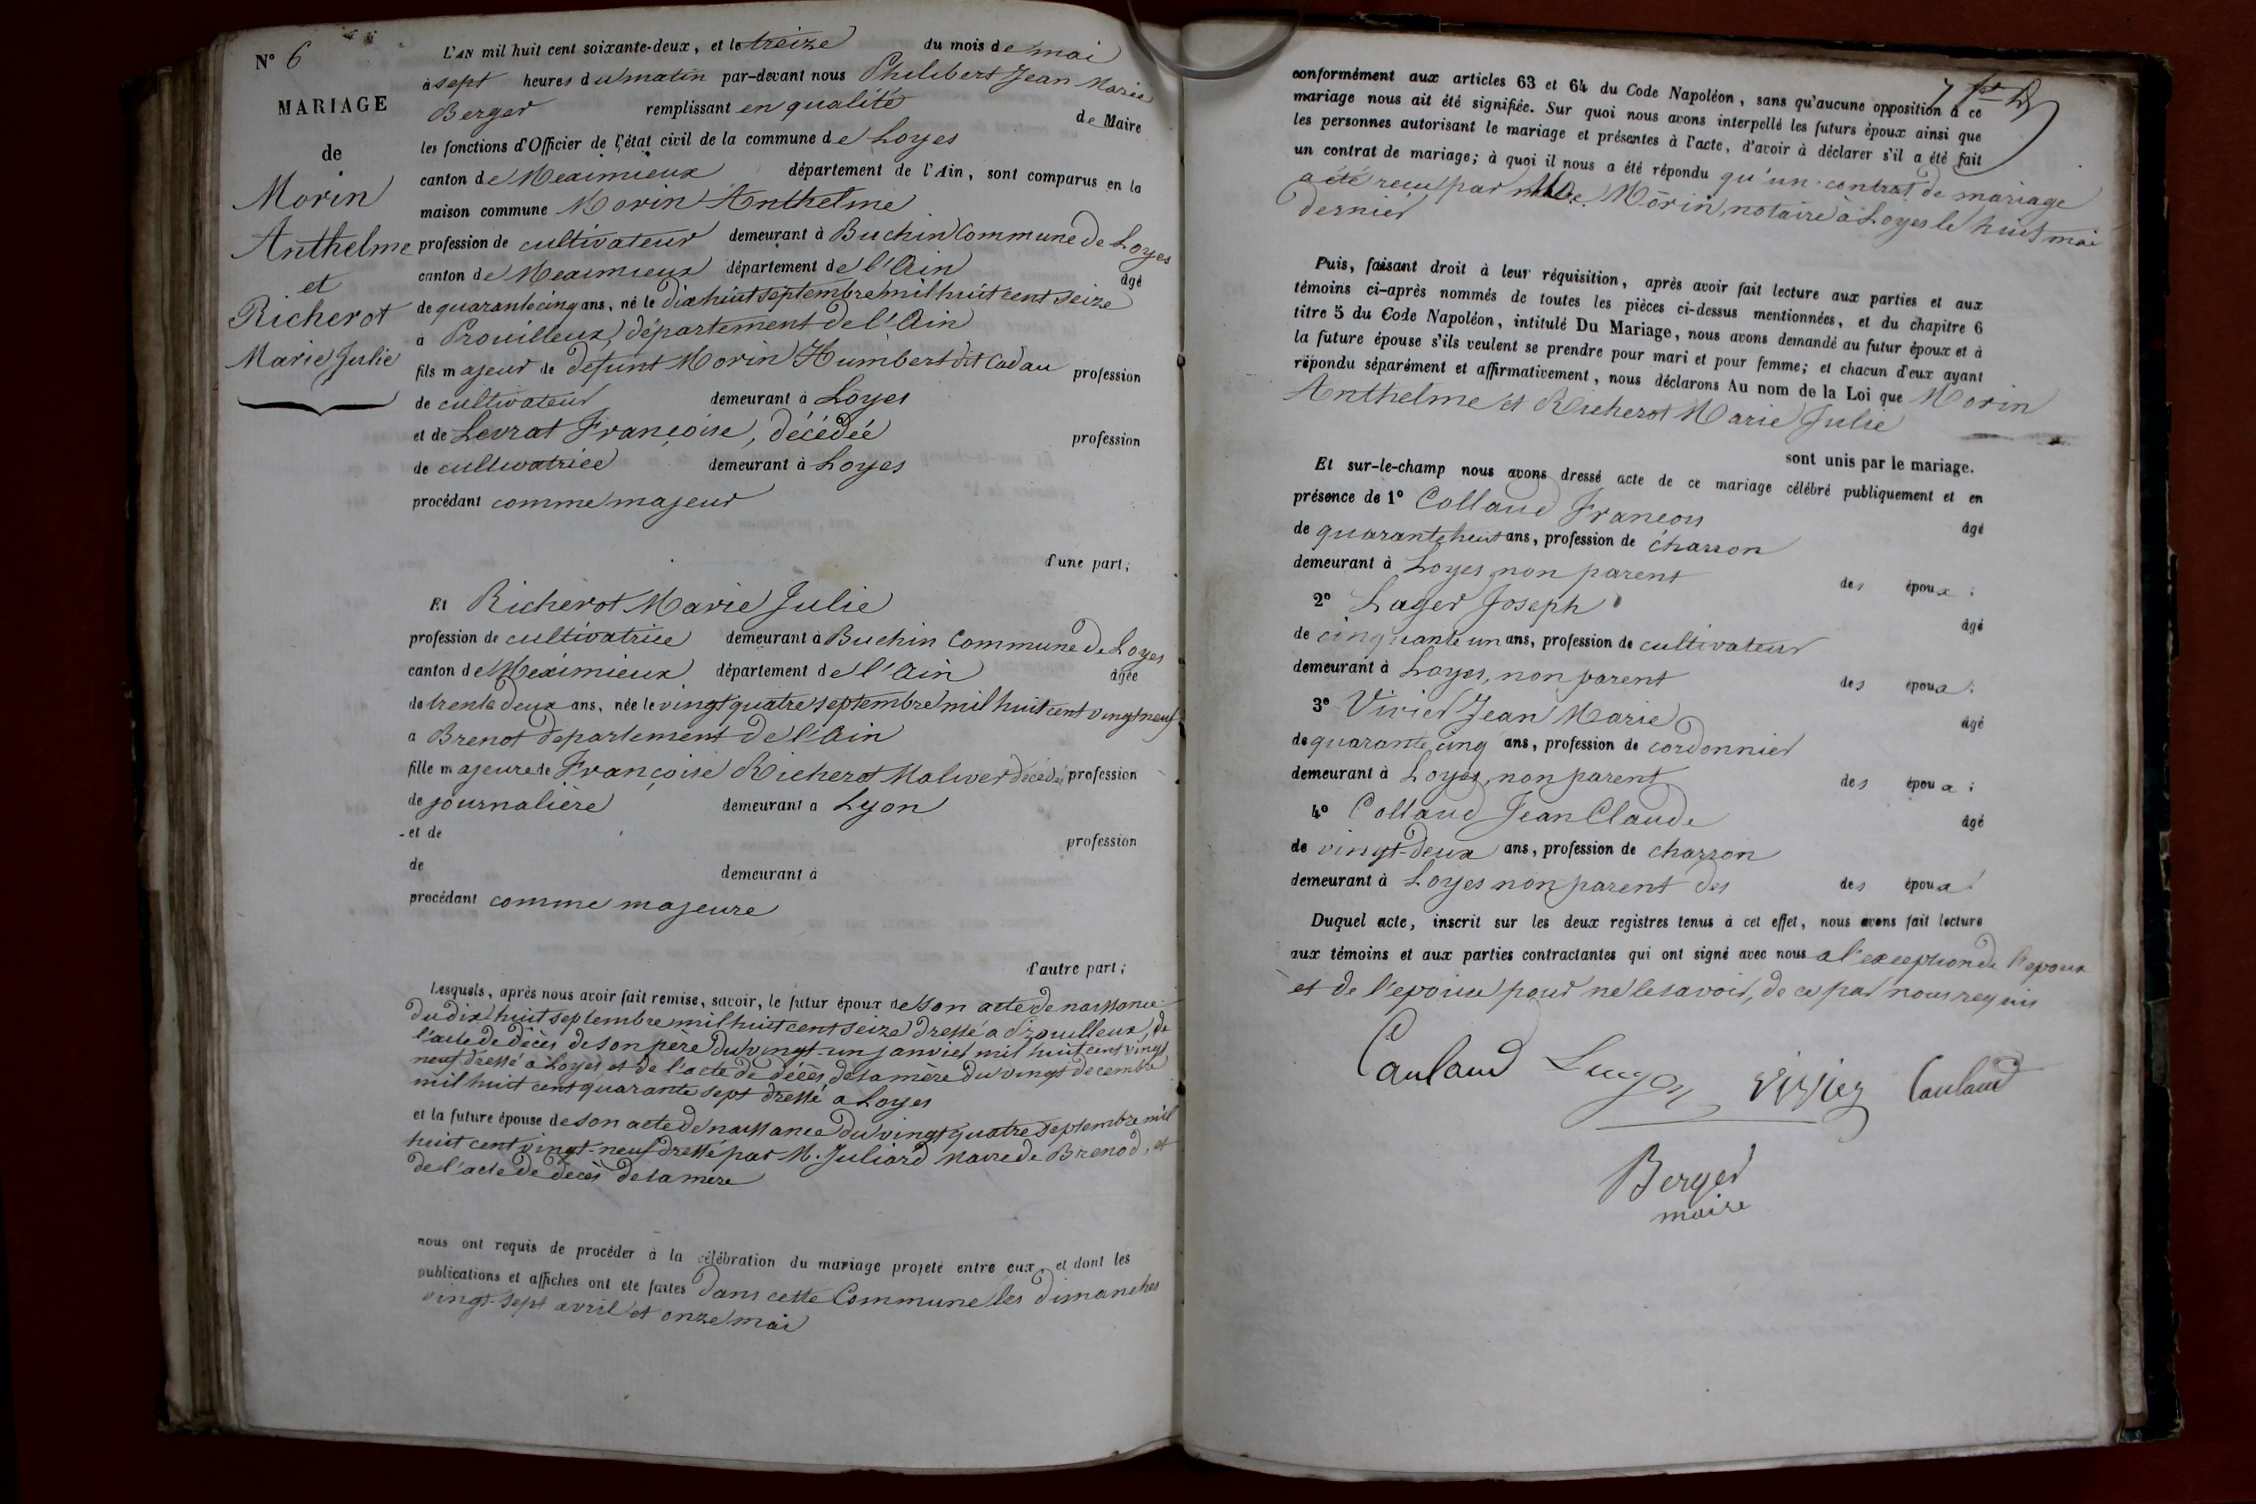 N° 6
MARIAGE
de
Morin
Anthelme
et
Richerot
Marie Julie
L'AN mil huit cent soixante-deux, et le treize du mois de mai
à sept heures du matin par-devant nous Philibert Jean Marie
Berger remplissant en qualité de Maire
les fonctions d'Officier de l'état civil de la commune de Loyes
canton de Meximieux département de l'Ain, sont comparus en la
maison commune Morin Anthelme
profession de cultivateur demeurant à Buchin Commune de Loyes
canton de Meximieux département de l'Ain âgé
de quarante cinq ans, né le dix huit septembre mil huit cent seize
à Prouilleux, département de l'Ain
fils majeur de defunt Morin Humbert dit Cadau profession
de cultivateur demeurant à Loyes
et de Levrat Françoise, décédée profession
de cultivatrice demeurant à Loyes
procédant comme majeur
d'une part;
Et Richerot Marie Julie
profession de cultivatrice demeurant à Buchin Commune de Loyes
canton de Meximieux département de l'Ain âgée
de trente deux ans, née le vingt quatre septembre mil huit cent vingt neuf
à Brenot département de l'Ain
fille majeure de Françoise Richerot Maliver décédée profession
de journalière demeurant à Lyon
et de profession
de demeurant à
procédant comme majeure
d'autre part;
Lesquels, après nous avoir fait remise, savoir, le futur époux de son acte de naissance
du dix huit septembre mil huit cent seize dressé à Prouilleux, de
l'acte de décès de son père du vingt-un janvier mil huit cent vingt
neuf dressé à Loyes et de l'acte de décès de sa mère du vingt decembre
mil huit cent quarante sept dressé a Loyes
et la future épouse de son acte de naissance du vingt quatre septembre mil
huit cent vingt-neuf dressé par M. Juliard Maire de Brenod, et
de l'acte de décès de sa mère
nous ont requis de procéder à la célébration du mariage projeté entre eux, et dont les
publications et affiches ont été faites dans cette Commune les dimanches
vingt-sept avril et onze mai
conformément aux articles 63 et 64 du Code Napoléon, sans qu'aucune opposition à ce
mariage nous ait été signifiée. Sur quoi nous avons interpellé les futurs époux ainsi que
les personnes autorisant le mariage et présentes à l'acte, d'avoir à déclarer s'il a été fait
un contrat de mariage; à quoi il nous a été répondu qu'un contrat de mariage
a été reçu par Morin, notaire à Loyes le huit mai
dernier
Puis, faisant droit à leur réquisition, après avoir fait lecture aux parties et aux
témoins ci-après nommés de toutes les pièces ci-dessus mentionnées, et du chapitre 6
titre 5 du Code Napoléon, intitulé Du Mariage, nous avons demandé au futur époux et à
la future épouse s'ils veulent se prendre pour mari et pour femme; et chacun d'eux ayant
répondu séparément et affirmativement, nous déclarons Au nom de la Loi que Morin
Anthelme et Richerot Marie Julie
sont unis par le mariage.
Et sur-le-champ nous avons dressé acte de ce mariage célébré publiquement et en
présence de 1° Collaud Francois âgé
de quarante huit ans, profession de charron
demeurant à Loyes, non parent des époux;
2° Lager Joseph âgé
de cinquante un ans, profession de cultivateur
demeurant à Loyes, non parent des époux;
3° Vivier Jean Marie âgé
de quarante cinq ans, profession de cordonnier
demeurant à Loyes, non parent des époux;
4° Collaud Jean Claude âgé
de vingt-deux ans, profession de charron
demeurant à Loyes non parent des des époux
Duquel acte, inscrit sur les deux registres tenus à cet effet, nous avons fait lecture
aux témoins et aux parties contractantes qui ont signé avec nous a l'exception de l'epoux
et de l'epouse pour ne le savoir, de ce par nous requis
Caulaud Vivier Caulaud
Berger
maire